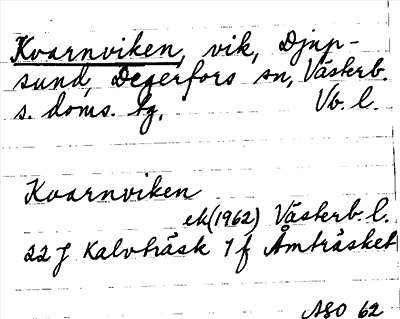 Kvarnviken, vik, Djup-
sund, Degerfors sn, Västerb.
s. doms. tg, Vb. l.
Kvarnviken
ek(1962) Västerb. l.
22 J Kalvträsk 7 f Åmträsket
ASO 62